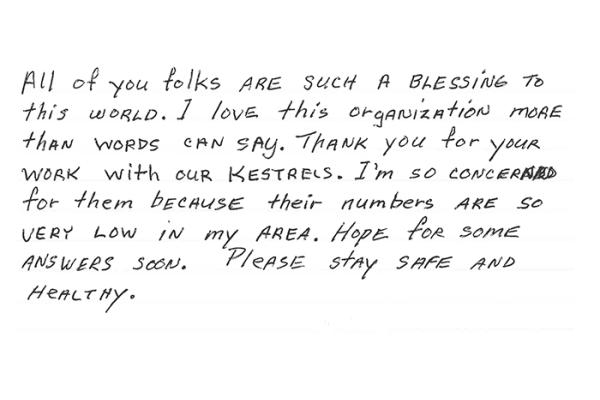 All of you folks ARE SUCH A BLESSiNG TO
this WORLD. I LOVE this organization MORE
thAN WORDS CAN SAY. THANK you for your
WORK with OUR KESTRELS. I'm SO CONCERNED
for them BECAUSE their numbers ARE SO
VERY LOW IN my AREA. HOPE for SOME
ANSWERS SOON. PLEASE STAY SAFE AND
HEALTHY.